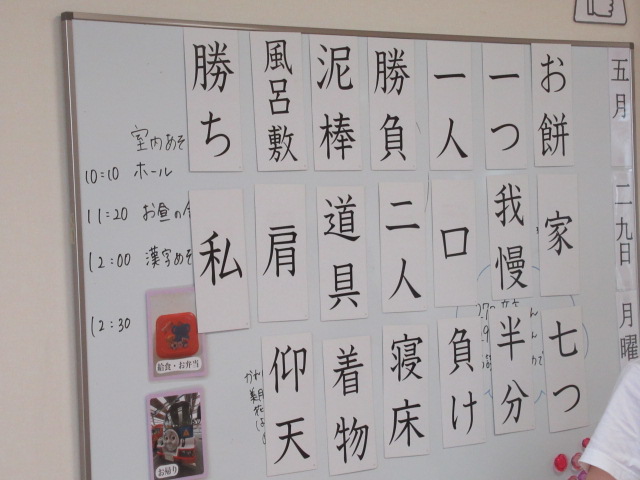 五月
二九日
月曜
お餅
一つ
一人
勝負
泥棒
風呂敷
勝ち
家
我慢
口
二人
道具
肩
私
七つ
半分
負け
寝床
着物
仰天
室内あそ
10:10 ホール
11:20 お昼の
12:00 漢字あそ
12:30
給食・お弁当
お帰り